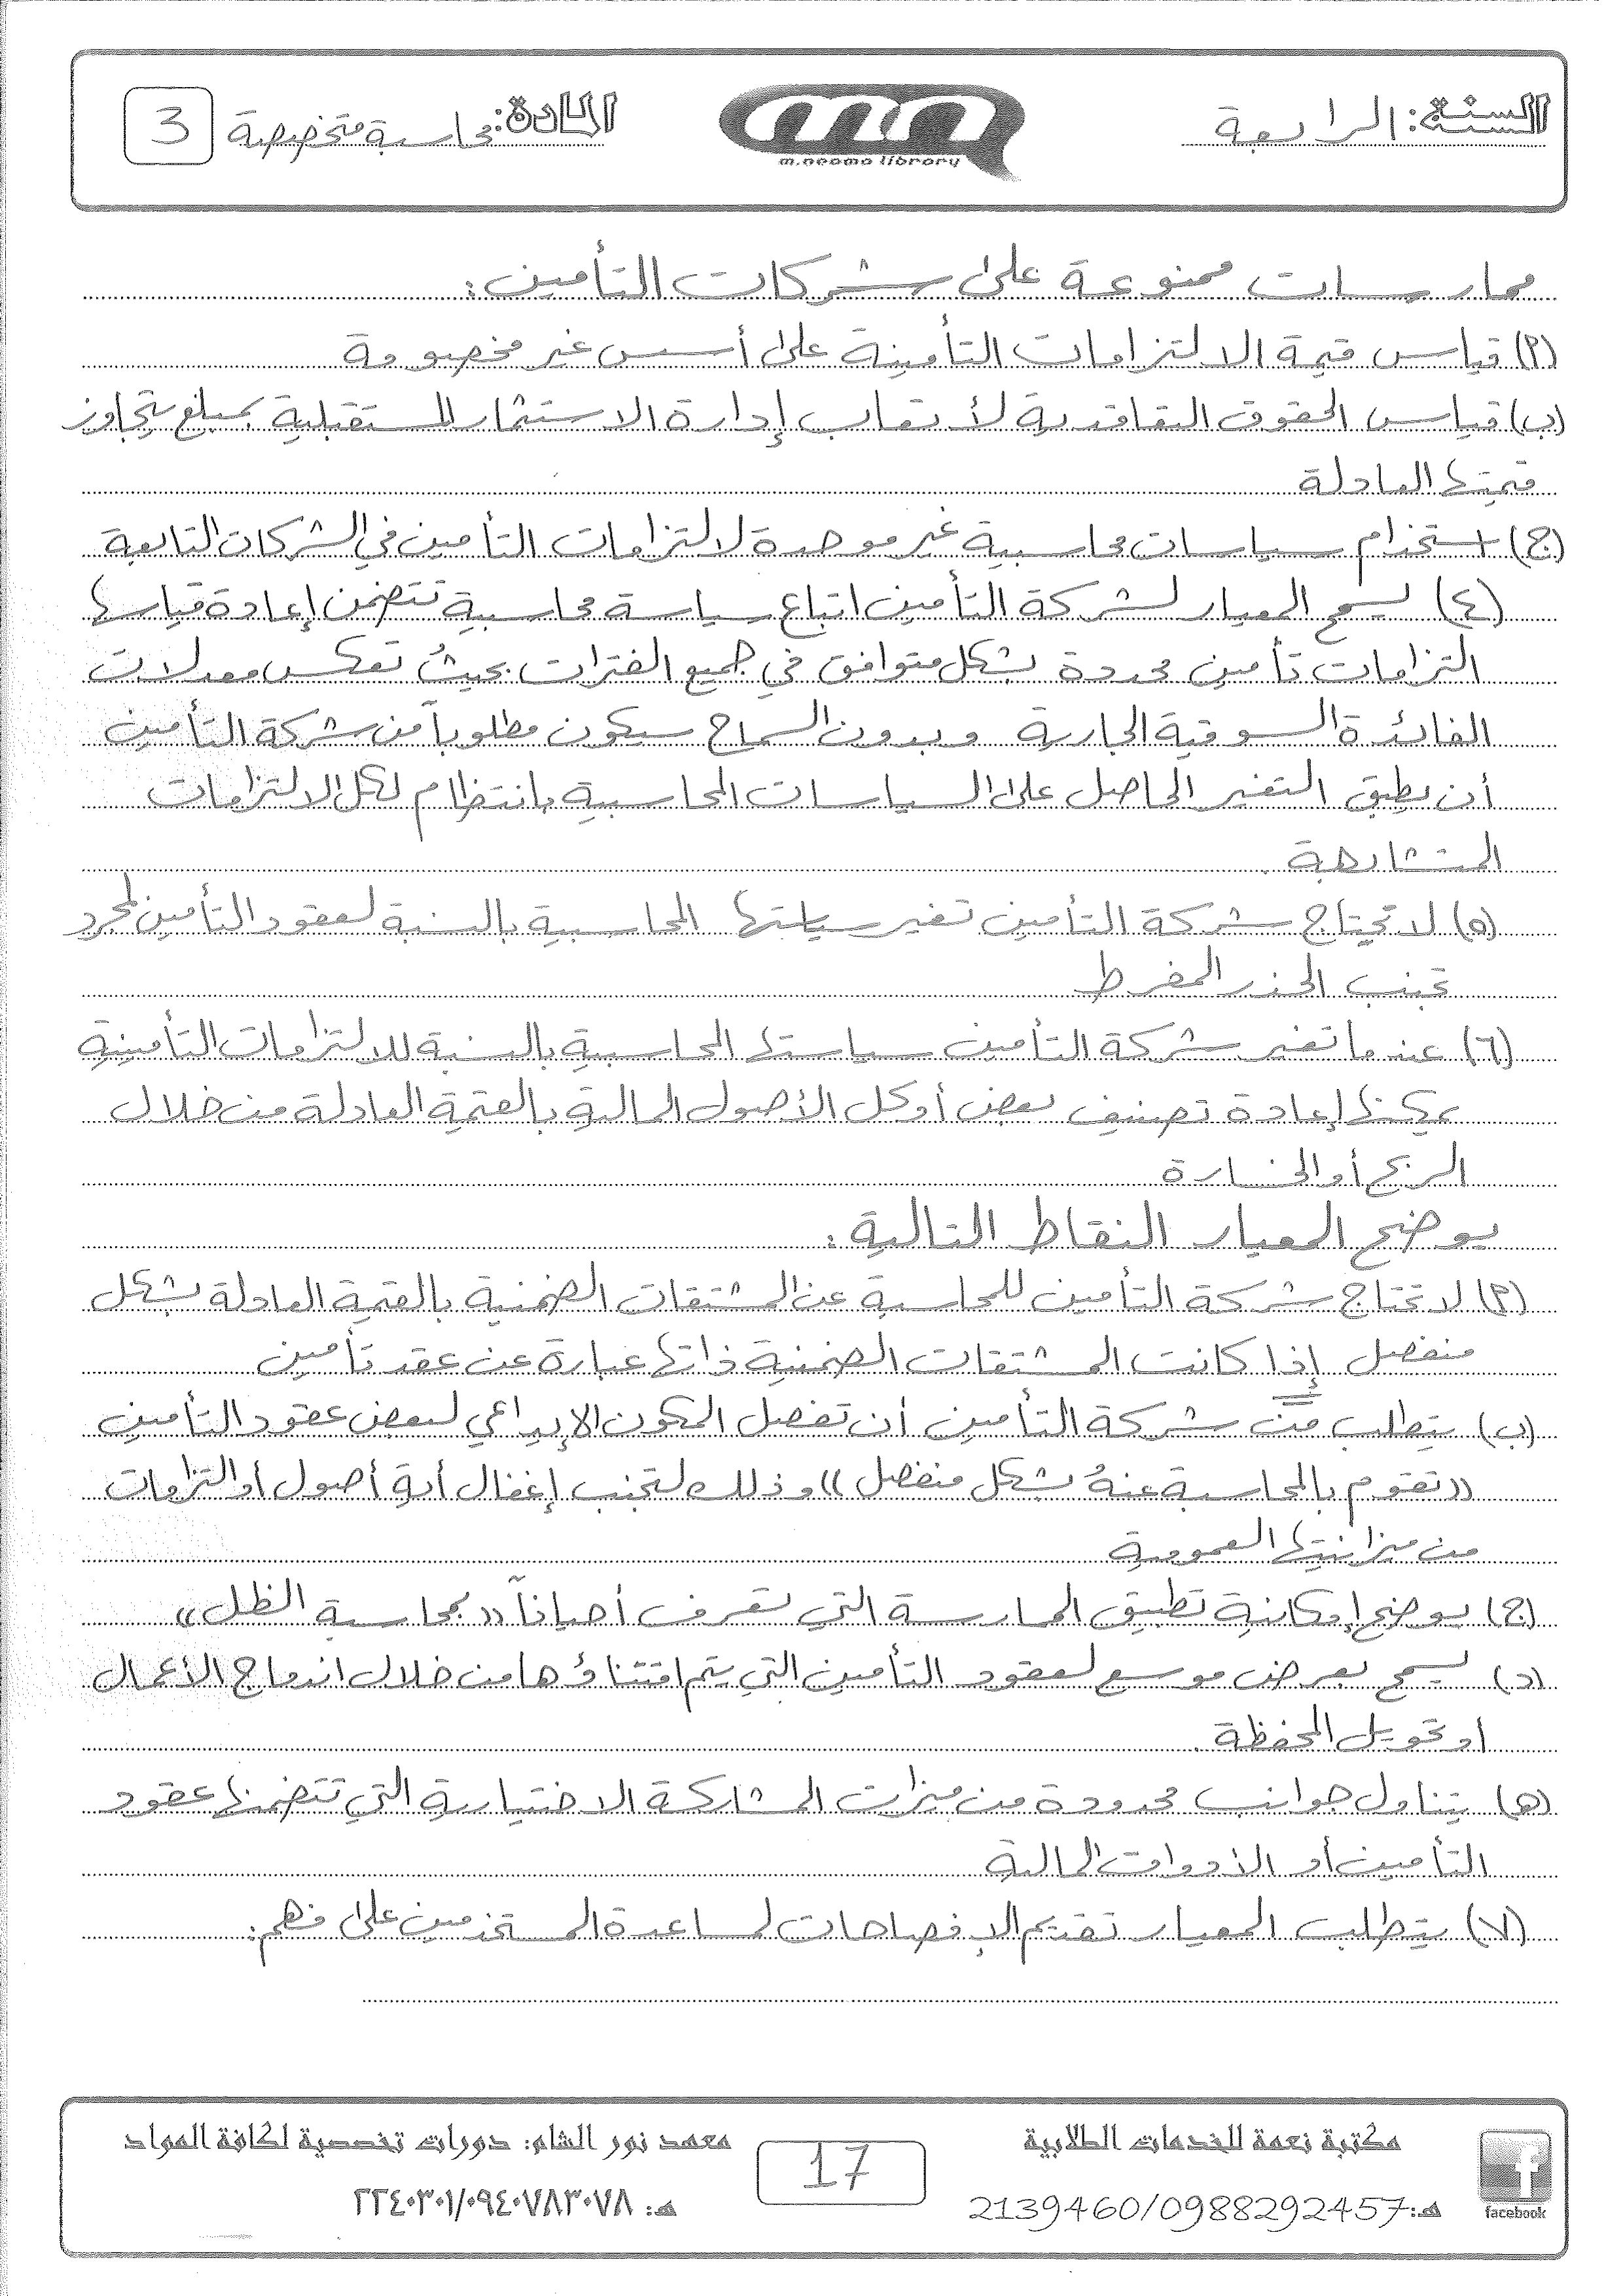 السنة: الرابعة
m.neoma library
المادة: محاسبة متخصصة
3
ممارسات ممنوعة على شركات التأمين:
(P) قياس قيمة الالتزامات التأمينة على أسس غير مخصومة
(ب) قياس الحقوق التعاقدية لأتعاب إدارة الاستثمار المستقبلية بمبلغ يتجاوز
قيمتها العادلة
(ج) استخدام سياسات محاسبية غير موحدة لالتزامات التأمين في الشركات التابعة
(٤) يسمح المعيار لشركة التأمين اتباع سياسة محاسبية تتضمن إعادة قياسها
التزامات تأمين محددة بشكل متوافق في جميع الفترات بحيثُ تعكس معدلات
الفائدة السوقية الجارية وبدون السماح سيكون مطلوباً من شركة التأمين
أن يطبق التغير الحاصل على السياسات المحاسبية بانتظام لكل الالتزامات
المتشابهة.
(٥) لا تحتاج شركة التأمين تغير سياستها المحاسبية بالنسبة لعقود التأمين لمجرد
تجنب الحذر المفرط
(٦) عندما تغير شركة التأمين سياستها المحاسبية بالنسبة للالتزامات التأمينية
يمكنها إعادة تصنيف بعض أو كل الأصول المالية بالقيمة العادلة من خلال
الربح أو الخسارة
يوضح المعيار النقاط التالية:
(P) لا تحتاج شركة التأمين للمحاسبة عن المشتقات الضمنية بالقيمة العادلة بشكل
منفصل إذا كانت المشتقات الضمنية ذاتها عبارة عن عقد تأمين
(ب) يتطلب منَّ شركة التأمين أن تفصل المكون الإيداعي لبعض عقود التأمين
((تقوم بالمحاسبة عنهُ بشكل منفصل)) وذلك لتجنب إغفال أية أصول أو التزامات
من ميزانيتها العمومية
(ج) يوضح إمكانية تطبيق الممارسة التي تعرف أحياناً ((بمحاسبة الظل))
(د) يسمح بعرض موسع لعقود التأمين التي يتم اقتناؤها من خلال اندماج الأعمال
أو تحويل المحفظة.
(ه) يتناول جوانب محدودة من ميزات المشاركة الاختيارية التي تتضمنها عقود
التأمين أو الأدوات المالية
(٧) يتطلب المعيار تقديم الإفصاحات لمساعدة المستخدمين على فهم:
facebook
مكتبة نعمة للخدمات الطلابية
هـ: 2139460/0988292457
17
معهد نور الشام: دورات تخصصية لكافة المواد
هـ: ٢٢٤٠٣٠١/٠٩٤٠٧٨٣٠٧٨